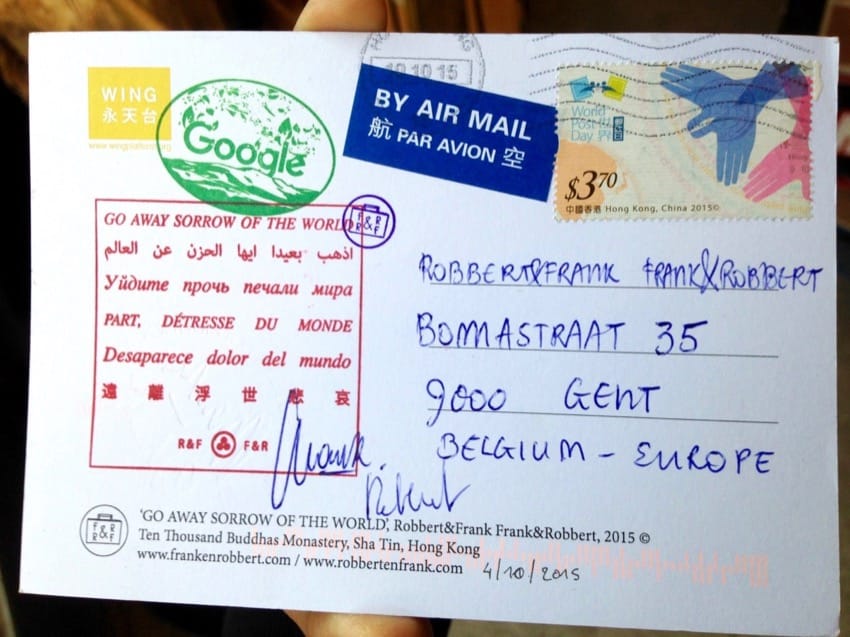 10 10 15
WING
永天台
www.wingplatform.org
Google
BY AIR MAIL
航 PAR AVION 空
World
Post
Day
$3.70
中國香港 Hong Kong, China 2015©
GO AWAY SORROW OF THE WORLD
اذهب بعيدا ايها الحزن عن العالم
Уйдите прочь печали мира
PART, DÉTRESSE DU MONDE
Desaparece dolor del mundo
遠 離 浮 世 悲 哀
R&F F&R
F&R
R&F
ROBBERT&FRANK FRANK&ROBBERT
BOMASTRAAT 35
9000 GENT
BELGIUM - EUROPE
Frank.
Robbert
F&R
R&F
'GO AWAY SORROW OF THE WORLD', Robbert&Frank Frank&Robbert, 2015 ©
Ten Thousand Buddhas Monastery, Sha Tin, Hong Kong
www.frankenrobbert.com / www.robbertenfrank.com 4/10/2015